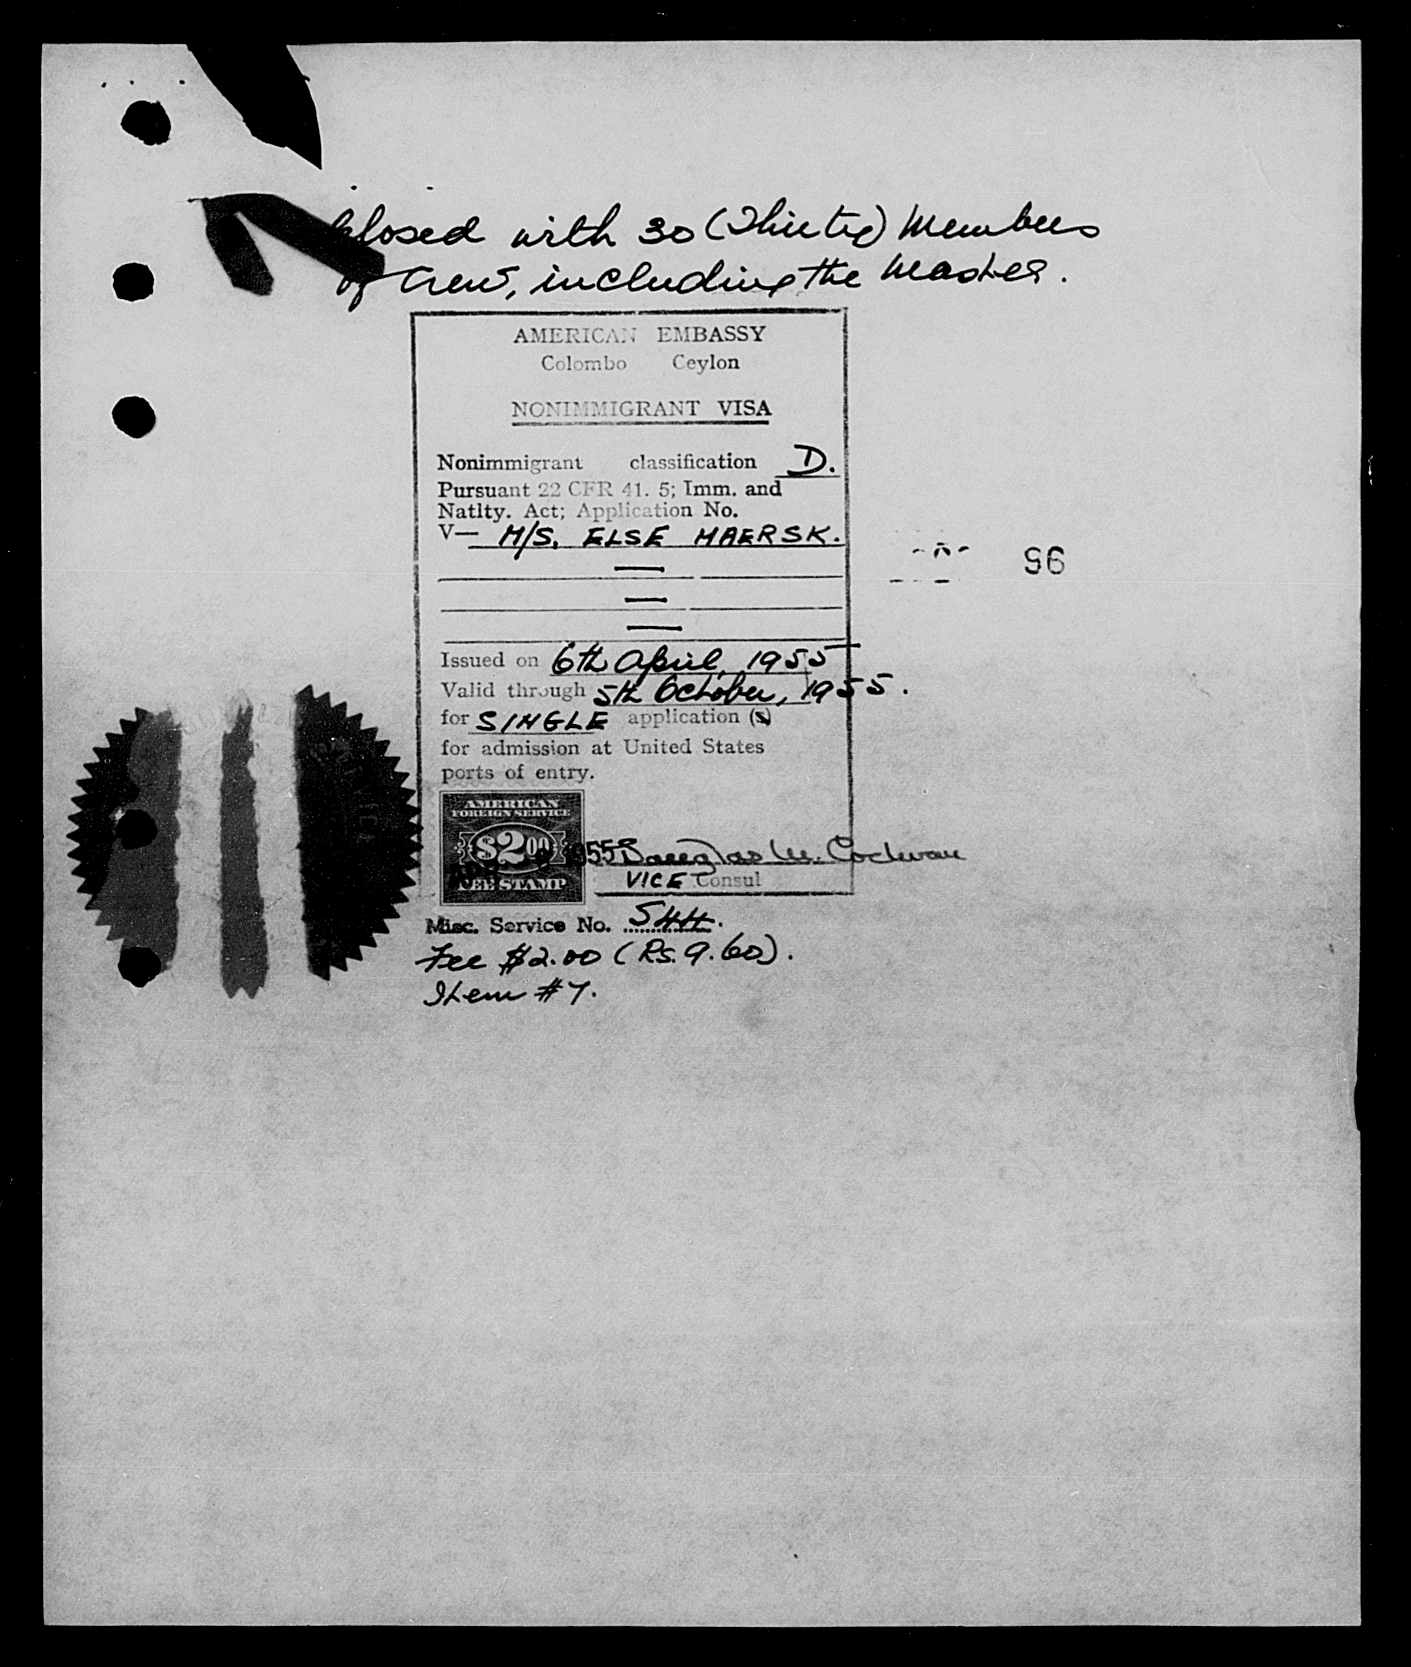 Closed with 30 (Thirty) Members
of Crew, including the Master.
AMERICAN EMBASSY
Colombo Ceylon
NONIMMIGRANT VISA
Nonimmigrant classification D.
Pursuant 22 CFR 41. 5; Imm. and
Natlty. Act; Application No.
V— M/S. ELSE MAERSK.
96
Issued on 6th April, 1955
Valid through 5th October, 1955.
for SINGLE application (s)
for admission at United States
ports of entry.
AMERICAN
FOREIGN SERVICE
$2.00
FEE STAMP
955
Douglas M. Cochran
VICE Consul
Misc. Service No. 544.
Fee $2.00 (Rs. 9.60).
Item #7.